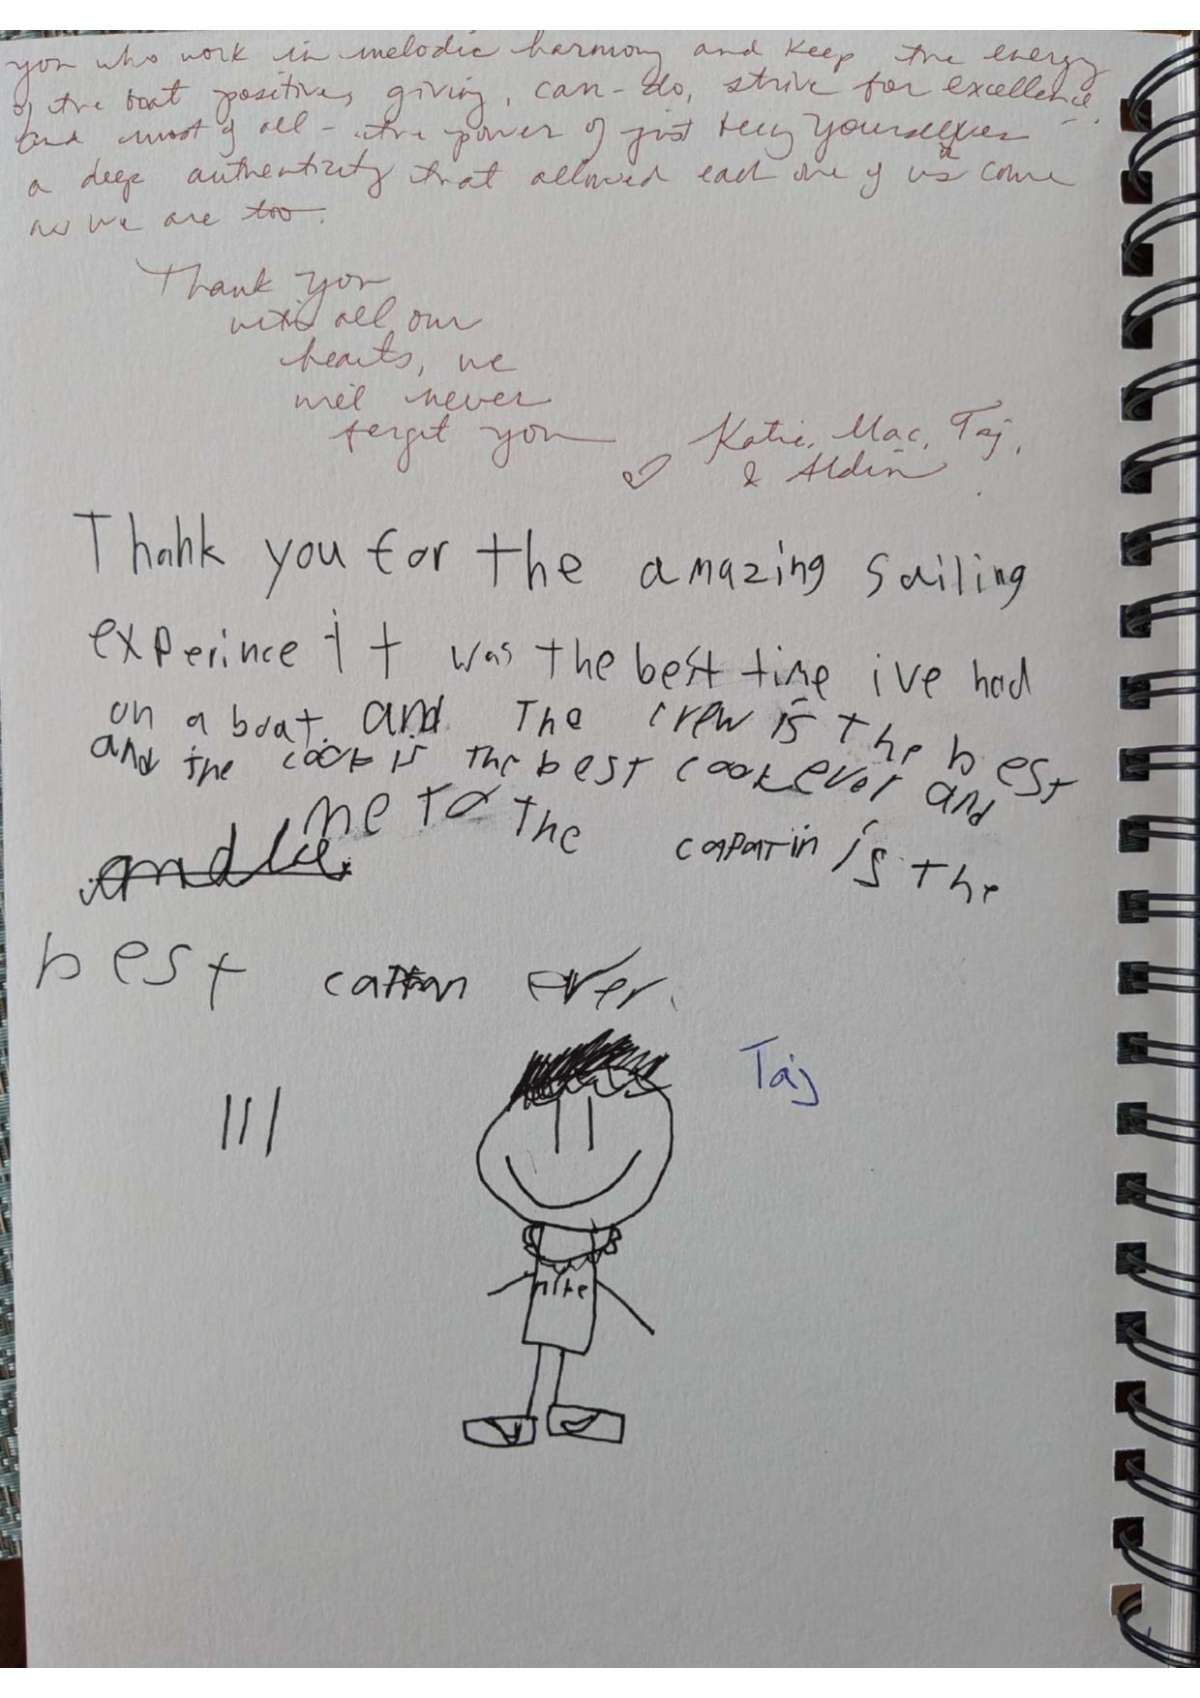 you who work in melodic harmony and keep the energy
of the boat positive, giving, can-do, strive for excellence,
and most of all - the power of just being yourselves
a deep authenticity that allowed each one of us to come
as we are too.
Thank you
with all our
hearts, we
will never
forget you
Katie, Mac, Taj,
& Aldin
Thank you for the amazing sailing
experince it was the best time ive had
on a boat. and the crew is the best
and the cook is the best cook ever and
me to the capatin is the
best ever.
Taj
nike